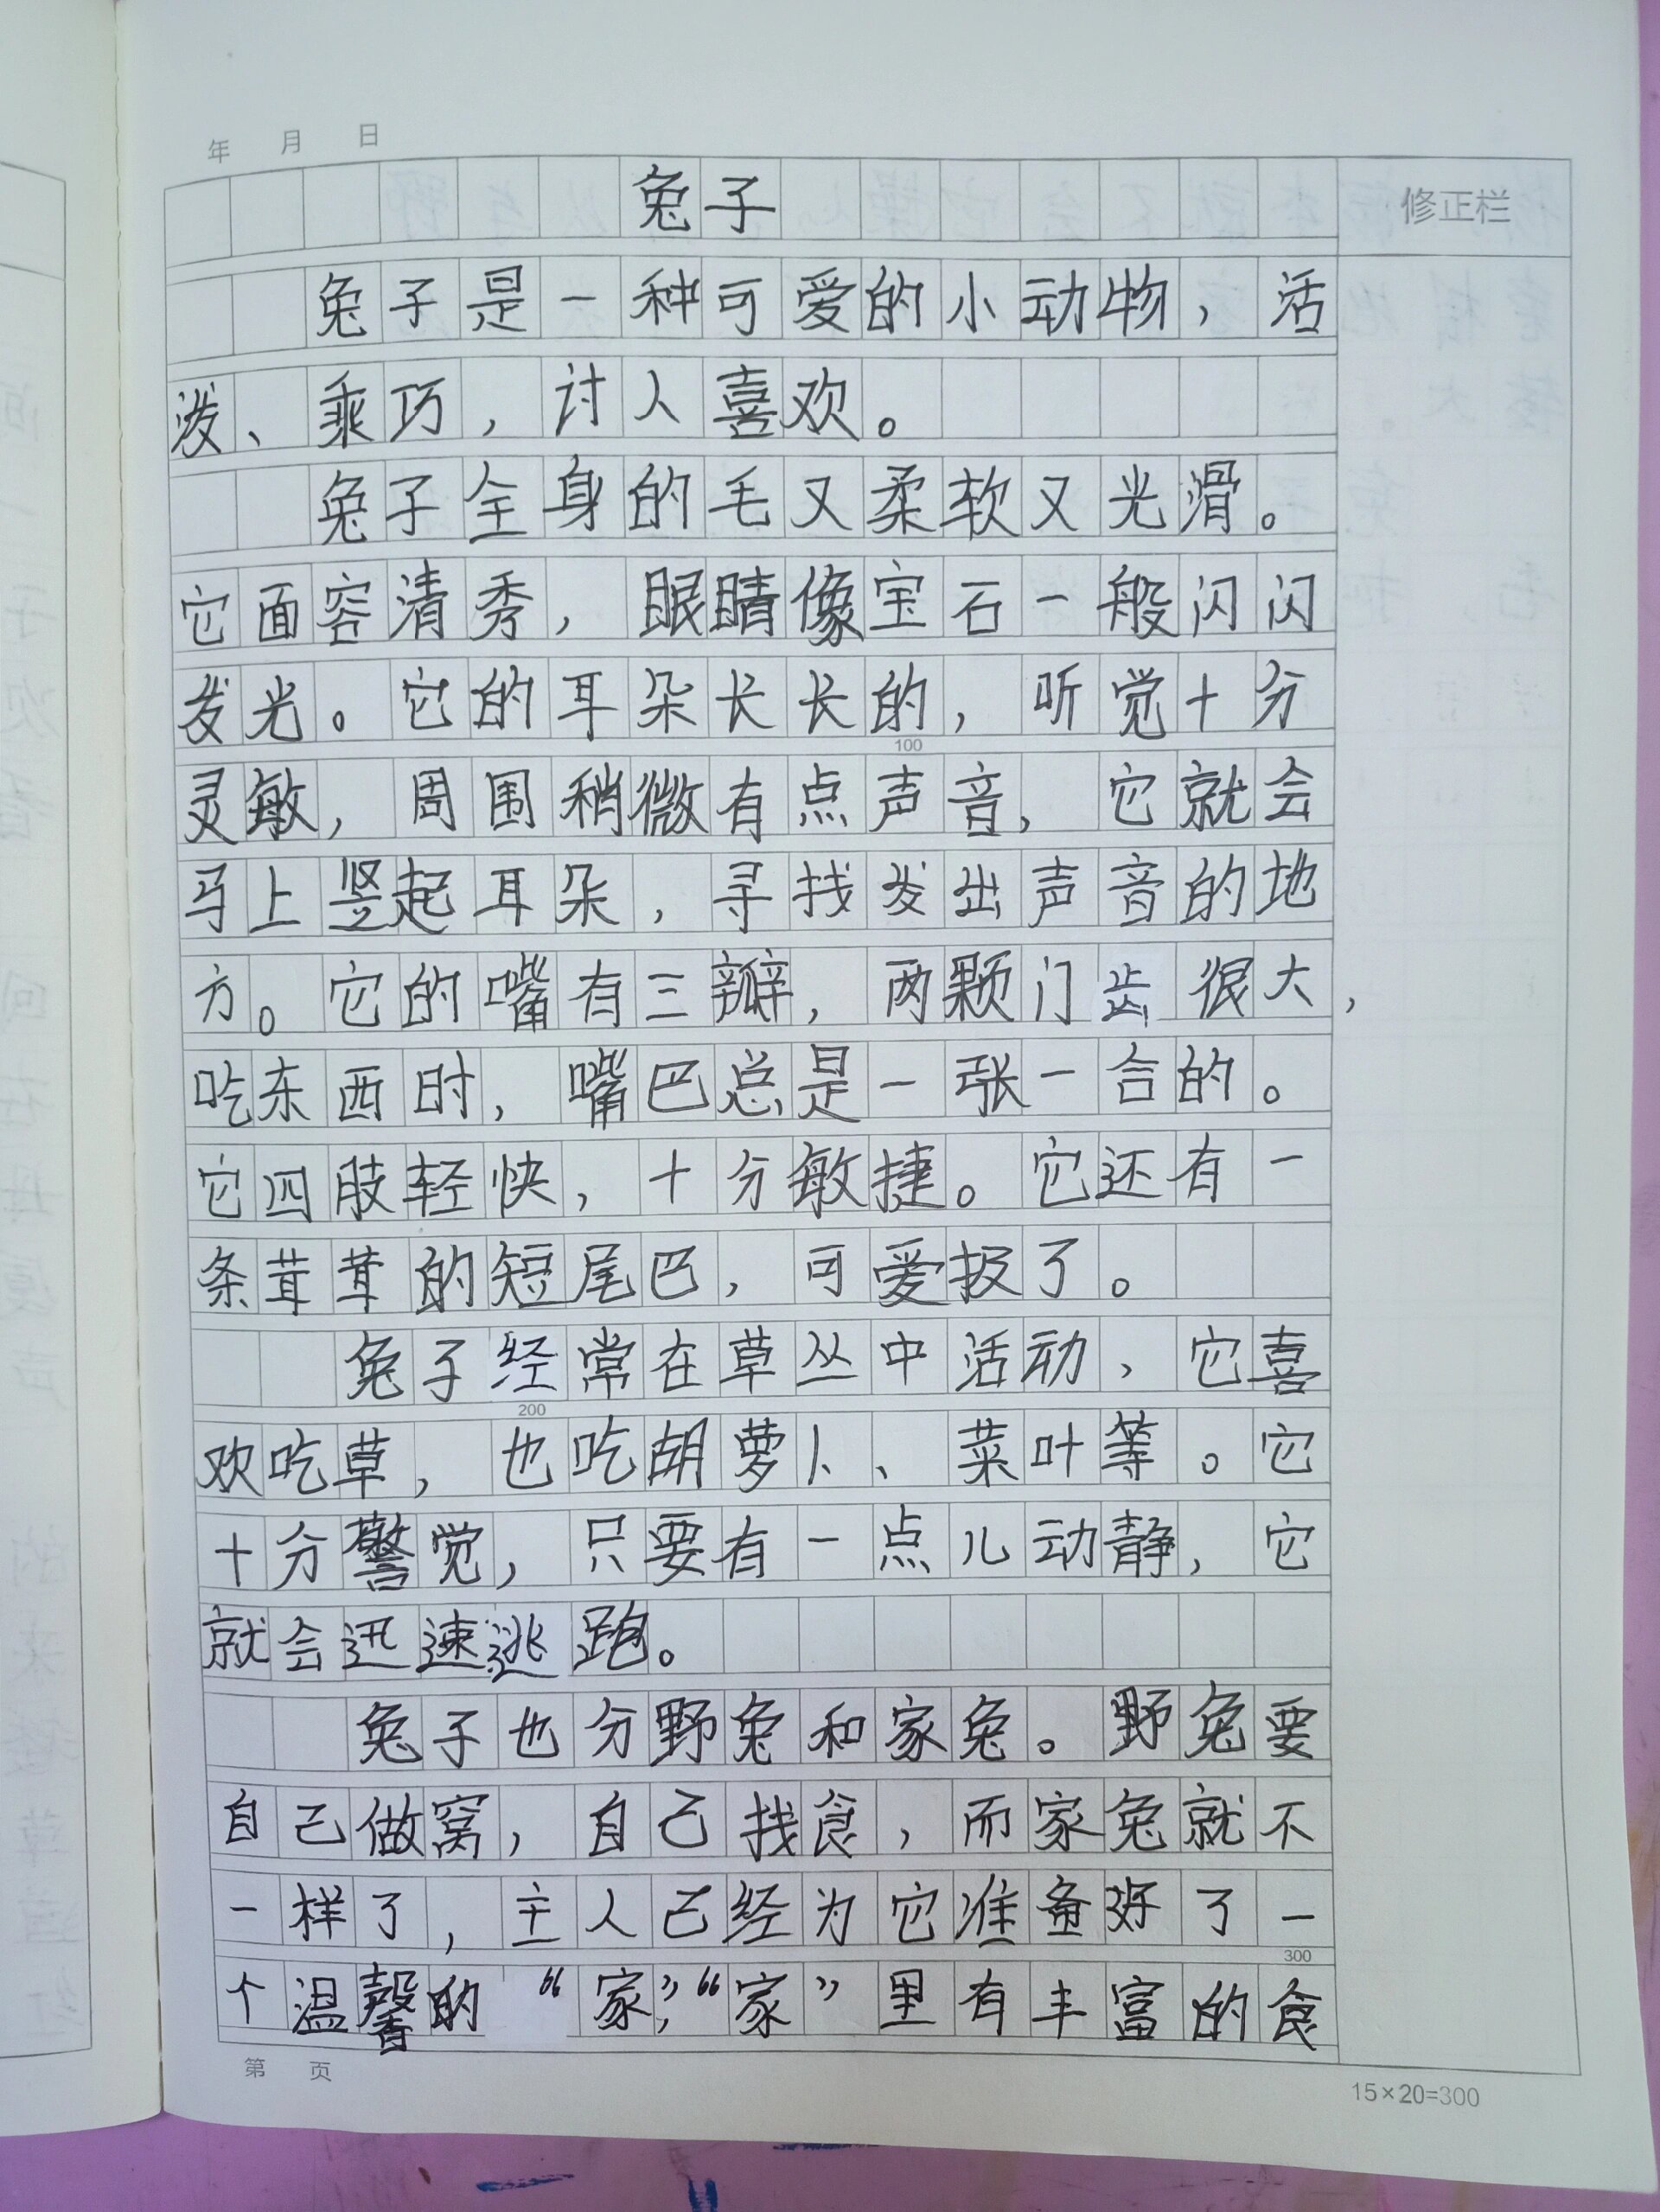 年 月 日
兔子
修正栏
兔子是一种可爱的小动物，活
泼、乘巧，讨人喜欢。
兔子全身的毛又柔软又光滑。
它面容清秀，眼睛像宝石一般闪闪
发光。它的耳朵长长的，听觉十分
100
灵敏，周围稍微有点声音，它就会
马上竖起耳朵，寻找发出声音的地
方。它的嘴有三瓣，两颗门齿很大，
吃东西时，嘴巴总是一张一合的。
它四肢轻快，十分敏捷。它还有一
条茸茸的短尾巴，可爱极了。
兔子经常在草丛中活动，它喜
200
欢吃草，也吃胡萝卜、菜叶等。它
十分警觉，只要有一点儿动静，它
就会迅速逃跑。
兔子也分野兔和家兔。野兔要
自己做窝，自己找食，而家兔就不
一样了，主人已经为它准备好了一
300
个温馨的“家”，“家”里有丰富的食
第 页
15×20=300